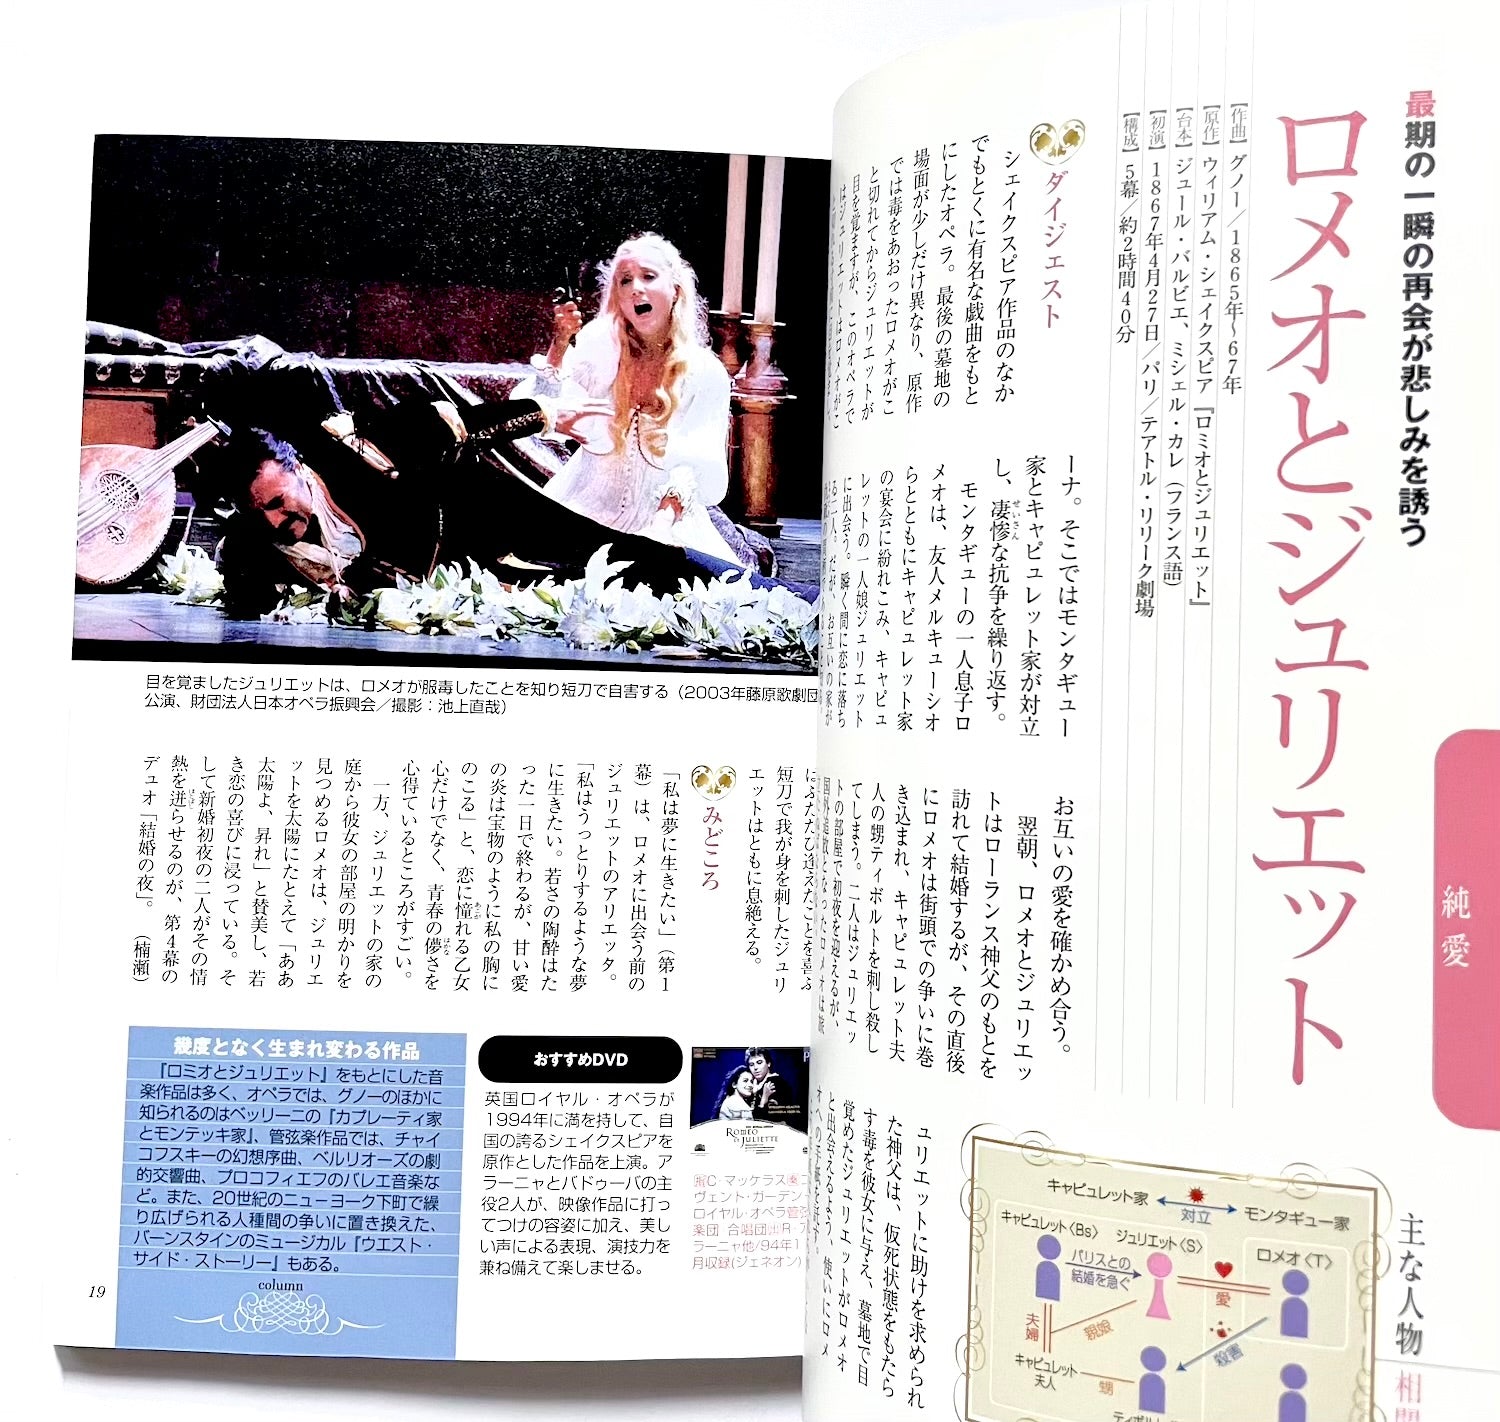 最期の一瞬の再会が悲しみを誘う
ロメオとジュリエット
【作曲】グノー／1865年〜67年
【原作】ウィリアム・シェイクスピア『ロミオとジュリエット』
【台本】ジュール・バルビエ、ミシェル・カレ（フランス語）
【初演】1867年4月27日／パリ／テアトル・リリーク劇場
【構成】5幕／約2時間40分
純愛
ダイジェスト
シェイクスピア作品のなか
でもとくに有名な戯曲をもと
にしたオペラ。最後の墓地の
場面が少しだけ異なり、原作
では毒をあおったロメオがこ
と切れてからジュリエットが
目を覚ますが、このオペラで
はジュリエットはロメオがこ
ーナ。そこではモンタギュー
家とキャピュレット家が対立
し、凄惨な抗争を繰り返す。
せいさん
モンタギューの一人息子ロ
メオは、友人メルキューシオ
らとともにキャピュレット家
の宴会に紛れこみ、キャピュ
レットの一人娘ジュリエット
に出会う。瞬く間に恋に落ち
る二人。だが、お互いの家が
お互いの愛を確かめ合う。
翌朝、ロメオとジュリエッ
トはローランス神父のもとを
訪れて結婚するが、その直後
にロメオは街頭での争いに巻
き込まれ、キャピュレット夫
人の甥ティボルトを刺し殺し
てしまう。二人はジュリエッ
トの部屋で初夜を迎えるが、
国外追放となったロメオは旅
ュリエットに助けを求められ
た神父は、仮死状態をもたら
す毒を彼女に与え、墓地で目
覚めたジュリエットがロメオ
と出会えるよう、使いにロメ
オへの手紙を託す。
主な人物
キャピュレット家
対立
モンタギュー家
キャピュレット〈Bs〉
ジュリエット〈S〉
ロメオ〈T〉
パリスとの
結婚を急ぐ
愛
夫婦
親娘
殺害
キャピュレット
夫人
甥
ティボルト
目を覚ましたジュリエットは、ロメオが服毒したことを知り短刀で自害する（2003年藤原歌劇団
公演、財団法人日本オペラ振興会／撮影：池上直哉）
はふたたび逢えたことを喜ぶ
短刀で我が身を刺したジュリ
エットはともに息絶える。
みどころ
「私は夢に生きたい」（第1
幕）は、ロメオに出会う前の
ジュリエットのアリエッタ。
「私はうっとりするような夢
に生きたい。若さの陶酔はた
った一日で終わるが、甘い愛
の炎は宝物のように私の胸に
のこる」と、恋に憧れる乙女
あこが
心だけでなく、青春の儚さを
はかな
心得ているところがすごい。
一方、ジュリエットの家の
庭から彼女の部屋の明かりを
見つめるロメオは、ジュリエ
ットを太陽にたとえて「ああ
太陽よ、昇れ」と賛美し、若
き恋の喜びに浸っている。そ
して新婚初夜の二人がその情
熱を迸らせるのが、第4幕の
ほとばし
デュオ「結婚の夜」。（楠瀬）
幾度となく生まれ変わる作品
『ロミオとジュリエット』をもとにした音
楽作品は多く、オペラでは、グノーのほかに
知られるのはベッリーニの『カプレーティ家
とモンテッキ家』、管弦楽作品では、チャイ
コフスキーの幻想序曲、ベルリオーズの劇
的交響曲、プロコフィエフのバレエ音楽な
ど。また、20世紀のニューヨーク下町で繰
り広げられる人種間の争いに置き換えた、
バーンスタインのミュージカル『ウエスト・
サイド・ストーリー』もある。
column
おすすめDVD
英国ロイヤル・オペラが
1994年に満を持して、自
国の誇るシェイクスピアを
原作とした作品を上演。ア
ラーニャとバドゥーバの主
役2人が、映像作品に打っ
てつけの容姿に加え、美し
い声による表現、演技力を
兼ね備えて楽しませる。
ROMÉO
& JULIETTE
指C・マッケラス 演コ
ヴェント・ガーデン・
ロイヤル・オペラ管弦
楽団 合唱団 出R・ア
ラーニャ他/94年1
月収録(ジェネオン)
19